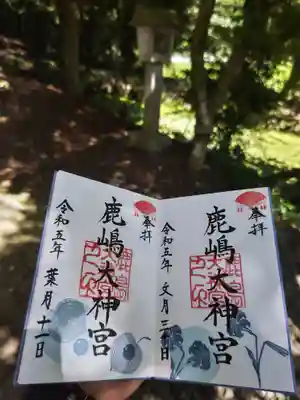 奉拝
鹿嶋大神宮
令和五年 文月三十日
奉拝
鹿嶋大神宮
令和五年 葉月十一日